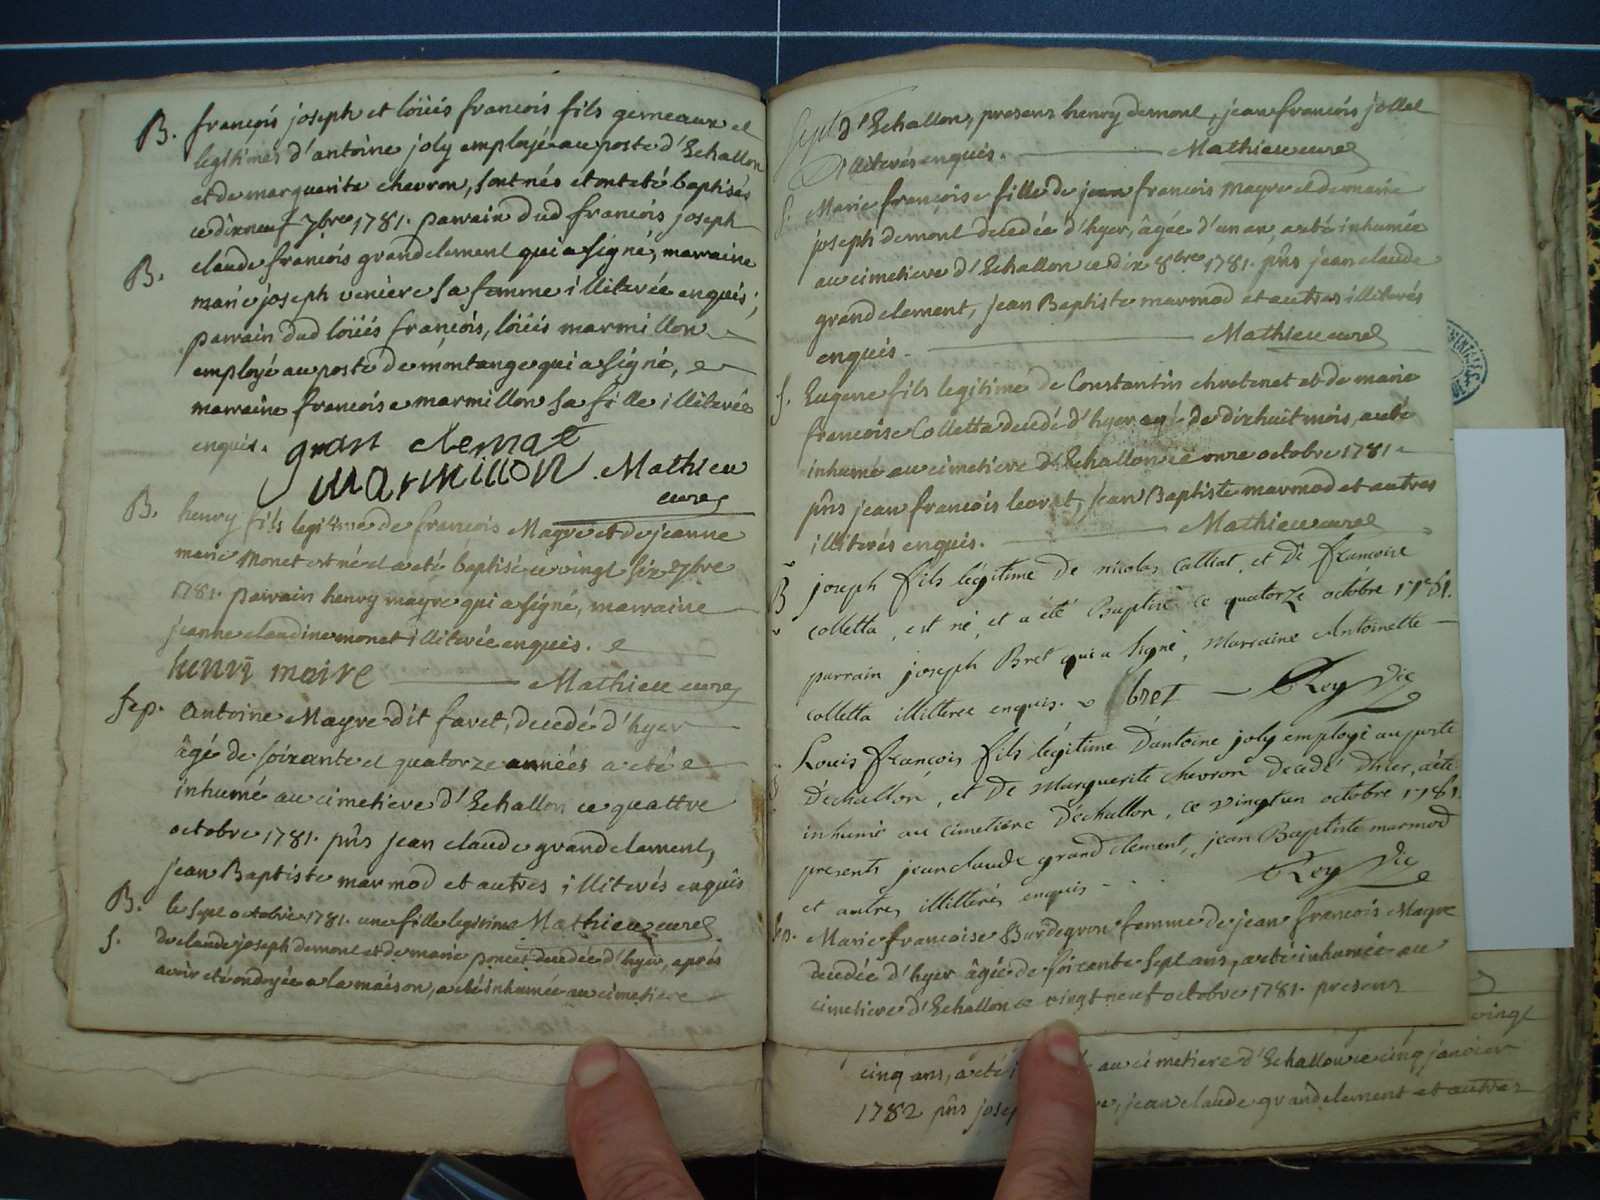 B. françois joseph et loüis francois fils gemeaux et
legitimes d'antoine joly employé au poste d'Echallon
et de marguerite chevron, sont nés et ont eté baptisés
ce dixneuf 7bre 1781. parrain dud françois joseph
B. claude françois grandclement qui a signé, marraine
marie joseph veniere sa femme illiterée enquis;
parrain dud loüis françois, loüis marmillon
employé au poste de montange qui a signé, et
marraine francoise marmillon sa fille illiterée
enquis. grant clemat
marmillon . Mathieu
curé
B. henry fils legitime de francois Mayre et de jeanne
marie Monet est né et a eté baptisé ce vingt six 7bre
1781. parrain henry mayre qui a signé, marraine
jeanne claudine monet illiterée enquis.
henri maire Mathieu curé
Sep. Antoine Mayre dit favet, decedé d'hyer
âgé de soixante et quatorze années a eté
inhumé au cimetiere d'Echallon ce quattre
octobre 1781. pñs jean claude grandclement,
jean Baptiste marmod et autres illiterés enquis
B. le sept octobre 1781. une fille legitime Mathieu curé
S. de claude joseph demont et de marie poncet decedée d'hyer, apres
avoir eté ondoyée a la maison, a eté inhumée au cimetiere
d'Echallon, presens henry demont, jean françois jollet
illiterés enquis. Mathieu curé
S. Marie françoise fille de jean francois Mayre et de marie
joseph demont decedée d'hyer, âgée d'un an, a eté inhumée
au cimetiere d'Echallon ce dix 8bre 1781. pñs jean claude
grandclement, jean Baptiste marmod et autres illiterés
enquis. Mathieu curé
S. Eugene fils legitime de Constantin chretenet et de marie
francoise Colletta decedé d'hyer agé de dixhuit mois, a eté
inhumé au cimetiere d'Echallon ce onze octobre 1781
pñs jean francois levrat, jean Baptiste marmod et autres
illiterés enquis. Mathieu curé
B joseph fils légitime de nicolas Calliat, et de françoise
colletta, est né, et a été Baptisé ce quatorze octobre 1781.
parrain joseph Bret qui a signé, Marraine Antoinette
colletta illitteree enquis. bret Rey Vic
Louis françois fils légitime d'antoine joly employé au poste
d'echallon, et de Marguerite chevron decedé d'hier, a été
inhumé au cimetiére d'echallon, ce vingt un octobre 1781.
presents jean claude grand clement, jean Baptiste marmod
et autres illittérés enquis Rey Vic
Sep. Marie francoise Burdegron femme de jean françois Mayre
decedée d'hyer âgée de soixante sept ans, a eté inhumée au
cimetiere d'Echallon ce vingt neuf octobre 1781. presens
vingt
cinq ans, a eté au cimetiere d'Echallon ce cinq janvier
1782 pñs jean claude grandclement et autres